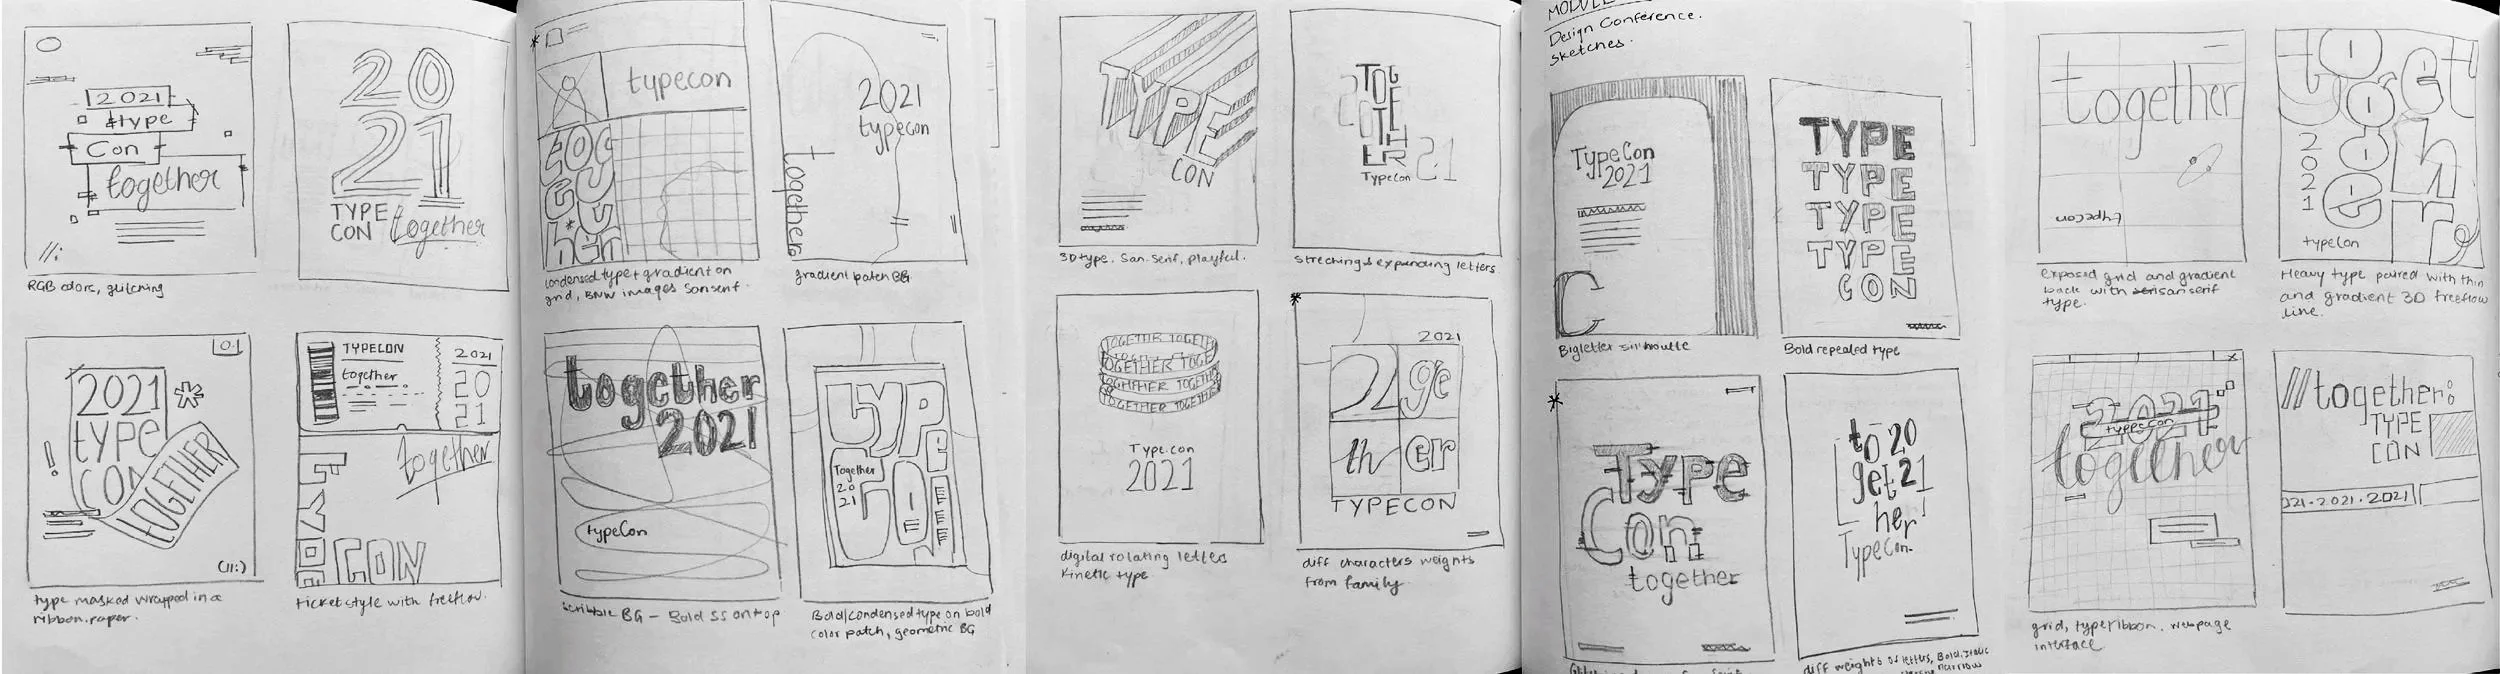 2021
#type
Con
together
RGB colors, glitching
20
21
TYPE
CON
together
0.1
2021
type
CON
TOGETHER
!
*
(11:)
type masked wrapped in a
ribbon. paper.
TYPECON
together
2021
20
21
together
TYPE
CON
ticket style with freeflow.
*
typecon
together
condensed type + gradient on
grid, BNW images Sanserif.
2021
typecon
together
gradient patch BG
together
2021
typeCon
scribble BG - Bold SS on top
TYPE
CON
Together
20
21
Bold/condensed type on bold
color patch, geometric BG
TYPE
CON
3D type. San.Serif, playful.
TOGETHER
21
Typecon
streching & expanding letters
TOGETHER TOGETH
TOGETHER TOGE
TOGETHER TOGETHER
TOGETHER TOGETHER
Type.con
2021
digital rotating letters
Kinetic type
*
2021
ge
th
er
TYPECON
diff characters weights
from family.
Design Conference.
sketches.
TypeCon
2021
C
Big letter silhoutte
TYPE
TYPE
TYPE
TYPE
CON
Bold repeated type
*
Type
Con
together
to 20
get 21
her!
TypeCon.
diff weights of letters, Bold, Italic
narrow
together
typecon
exposed grid and gradient
back with sanserif
type.
together
2
0
2
1
typeCon
Heavy type paired with thin
and gradient 3D freeflow
line.
x
2021
typeCon
together
grid, type ribbon. webpage
interface
//together:
TYPE
CON
021-2021.2021